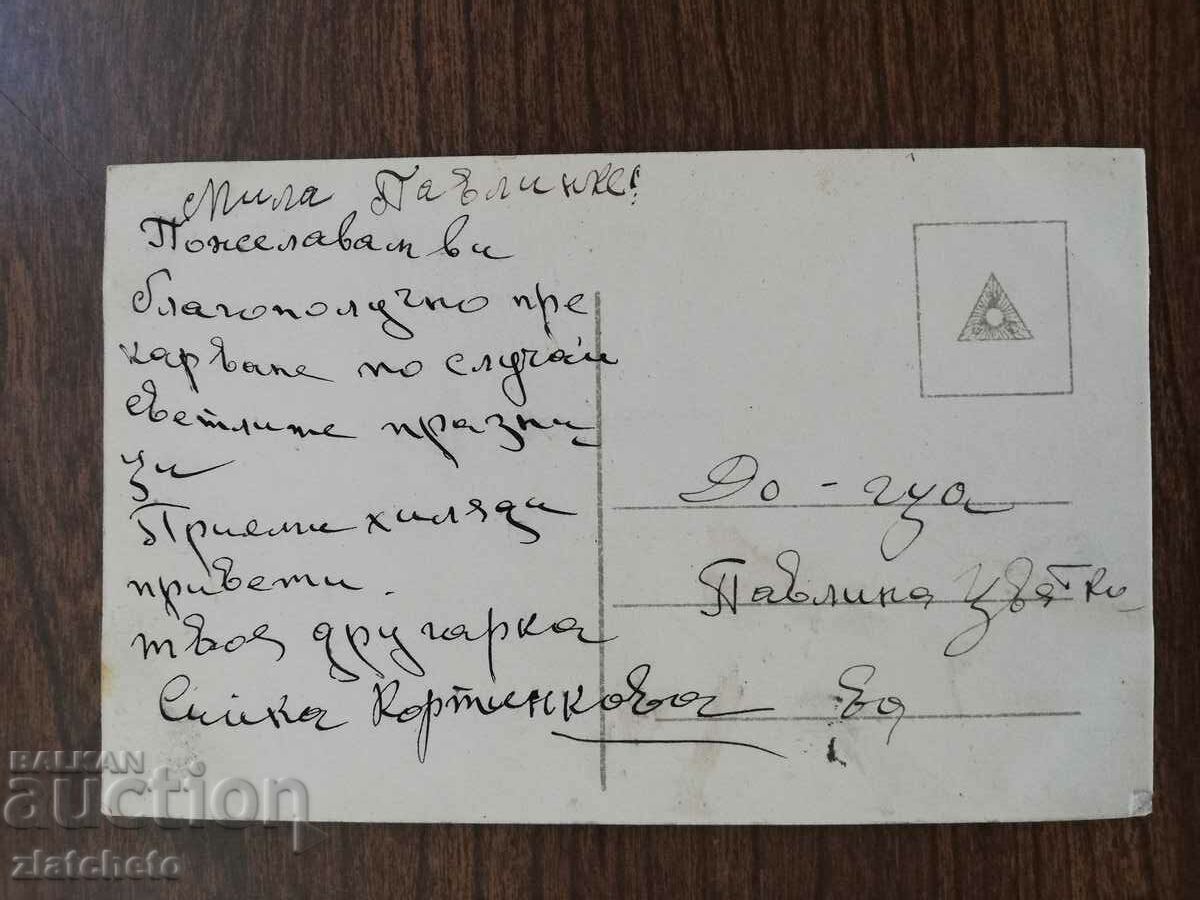 Мила Павлинке!
Пожелавам ви
благополучно пре
карване по случай
светлите празни
ци
Приеми хиляди
привети.
твоя другарка
Сийка Кортинкова
До - гца
Павлина Цветко
ва
BALKAN
auction
zlatcheto